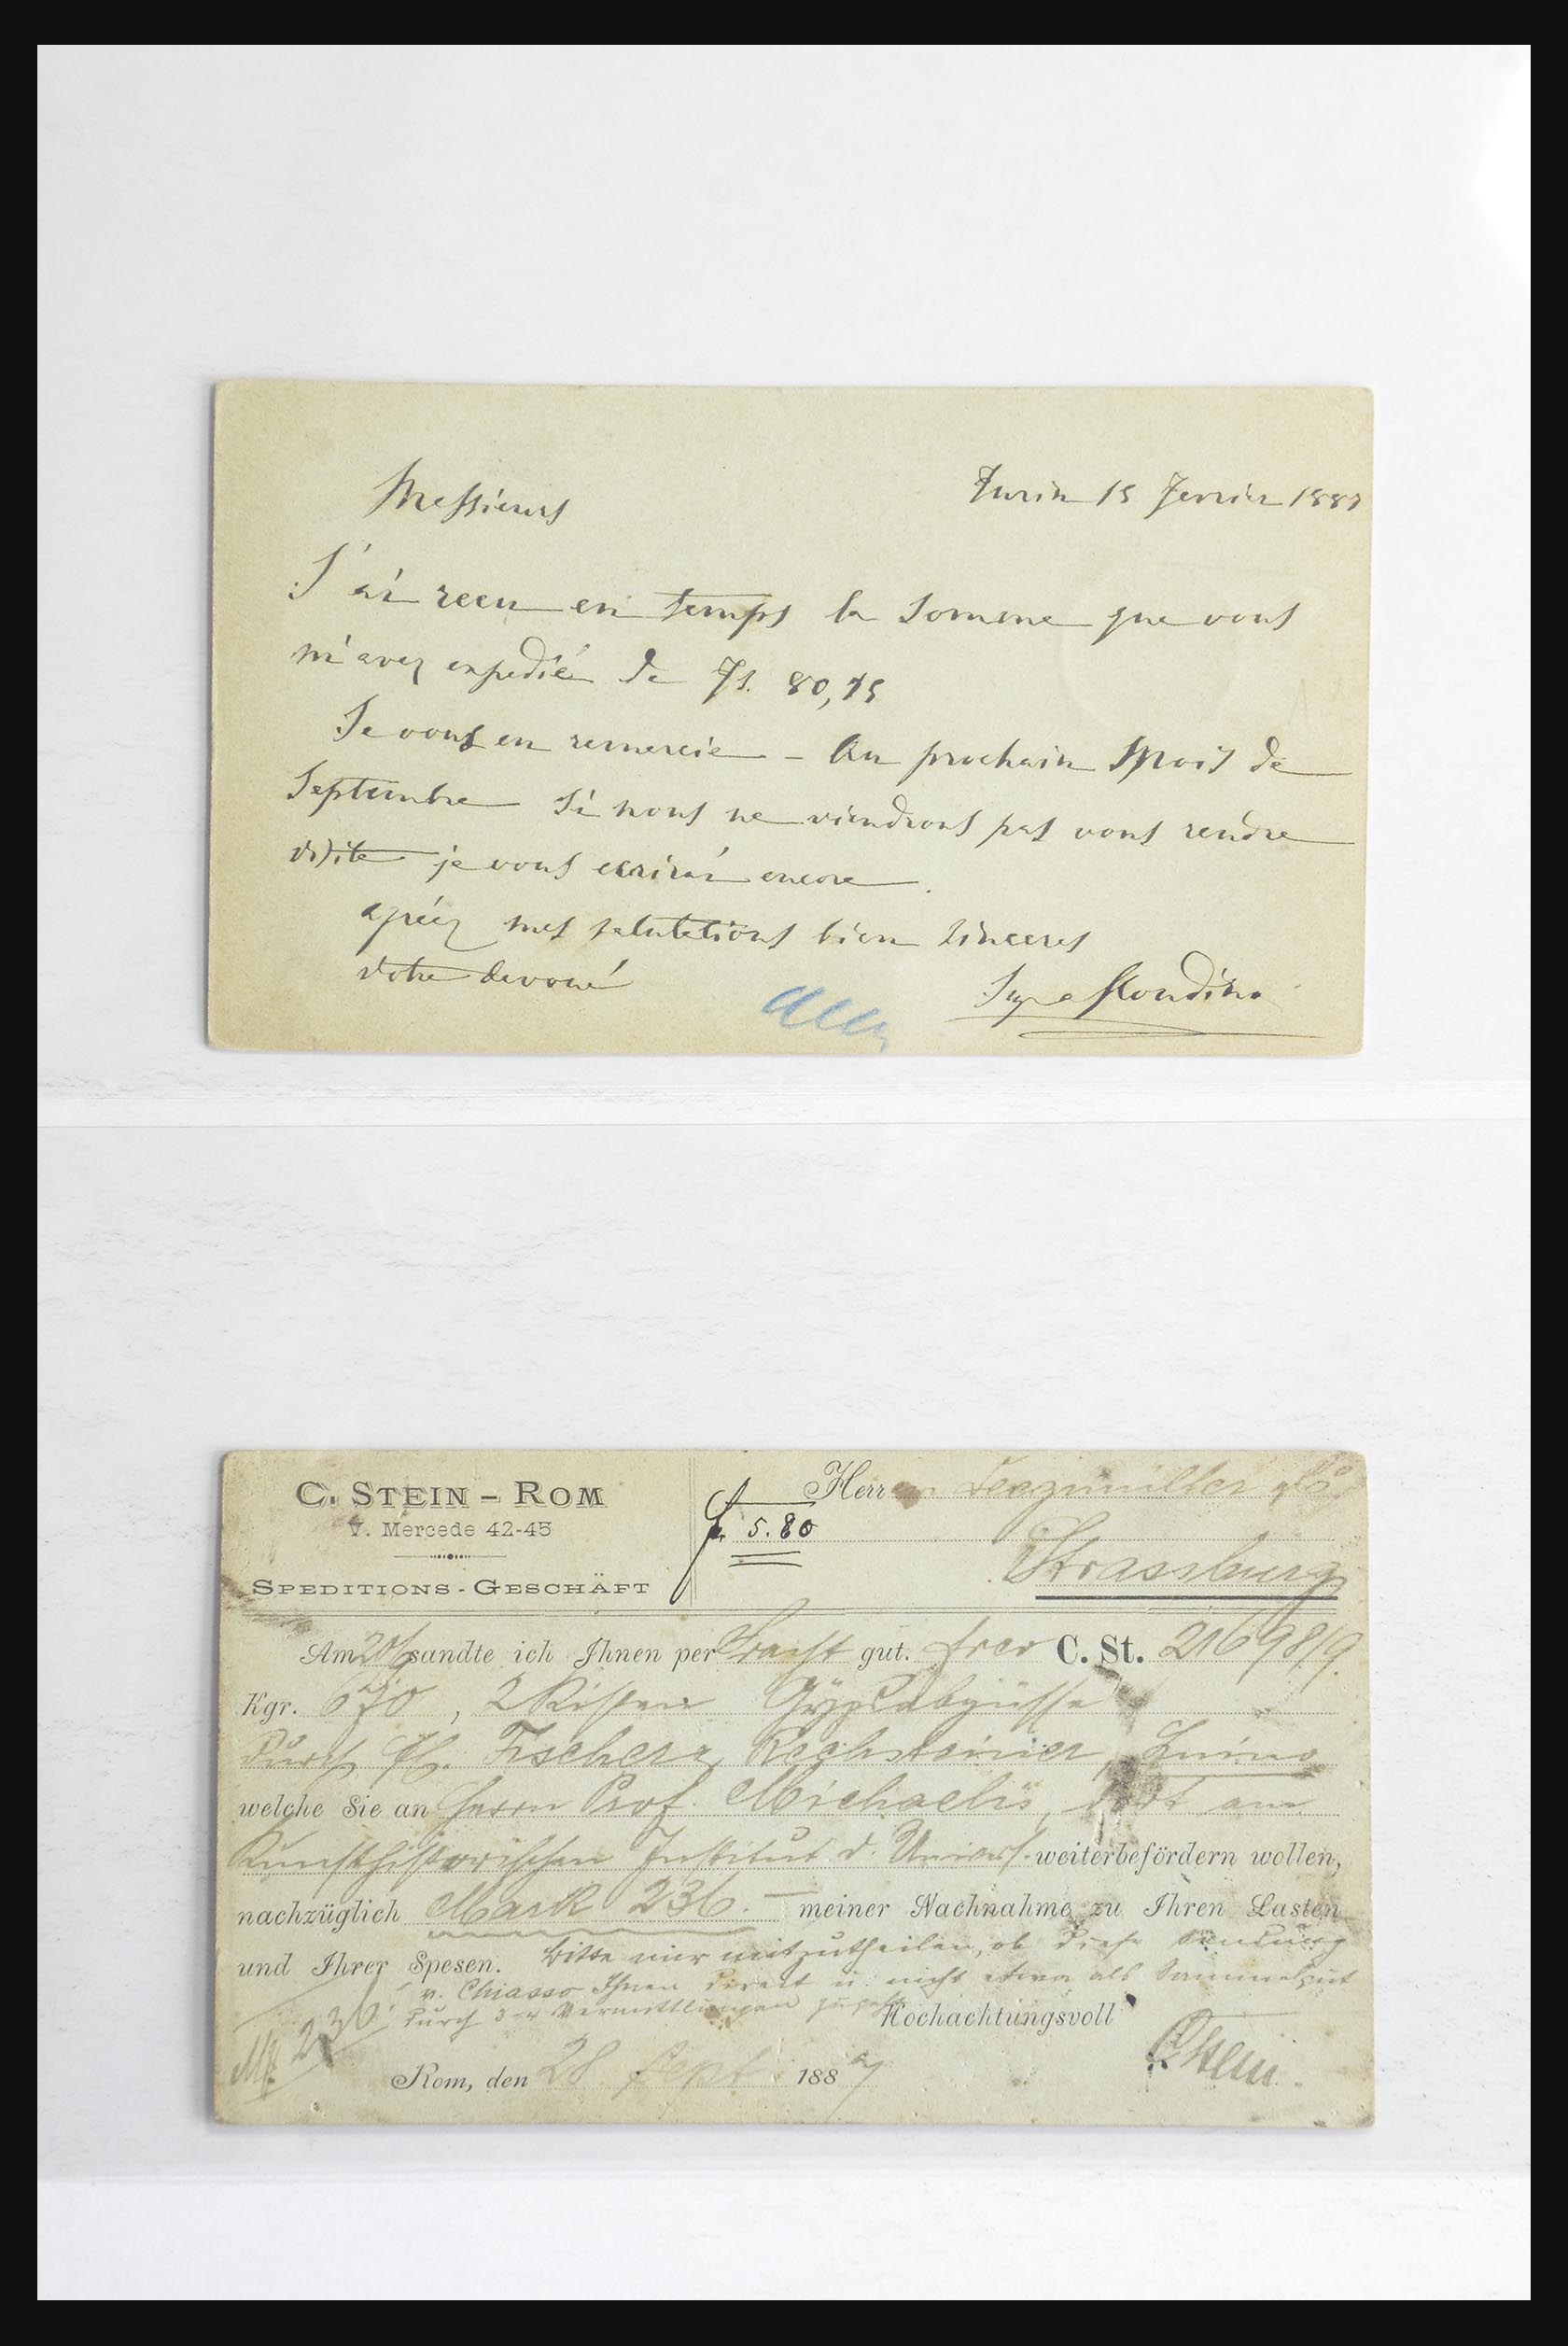 Messieurs
Turin 15 Fevrier 1887
J'ai recu en temps la somme que vous
m'avez expedié de Fs. 80,75
Je vous en remercie – Au prochain Mois de
Septembre si nous ne viendrons pas vous rendre
visite je vous ecrirai encore.
agréez mes salutations bien sinceres
votre devoué
C. STEIN – ROM
V. Mercede 42-45
SPEDITIONS-GESCHÄFT
Herren
fr. 5.80
Strassburg
Am 20/9 sandte ich Ihnen per Fracht gut. frco C. St. 21698/9.
Kgr. 670, 2 Kisten Gypsabgüsse
durch HH. Fischer & Rechsteiner, Luino
welche Sie an Herrn Prof. Michaelis, dort am
Kunsthistorischen Institut d. Univers. weiterbefördern wollen,
nachzüglich Mark 236.– meiner Nachnahme zu Ihren Lasten
und Ihrer Spesen. Bitte mir mitzutheilen, ob diese Sendung
v. Chiasso Ihnen direct u. nicht etwa als Sammelgut
durch 3-4 Vermittlungen zugeht.
Hochachtungsvoll
Rom, den 28 Sept. 1887
C Stein.